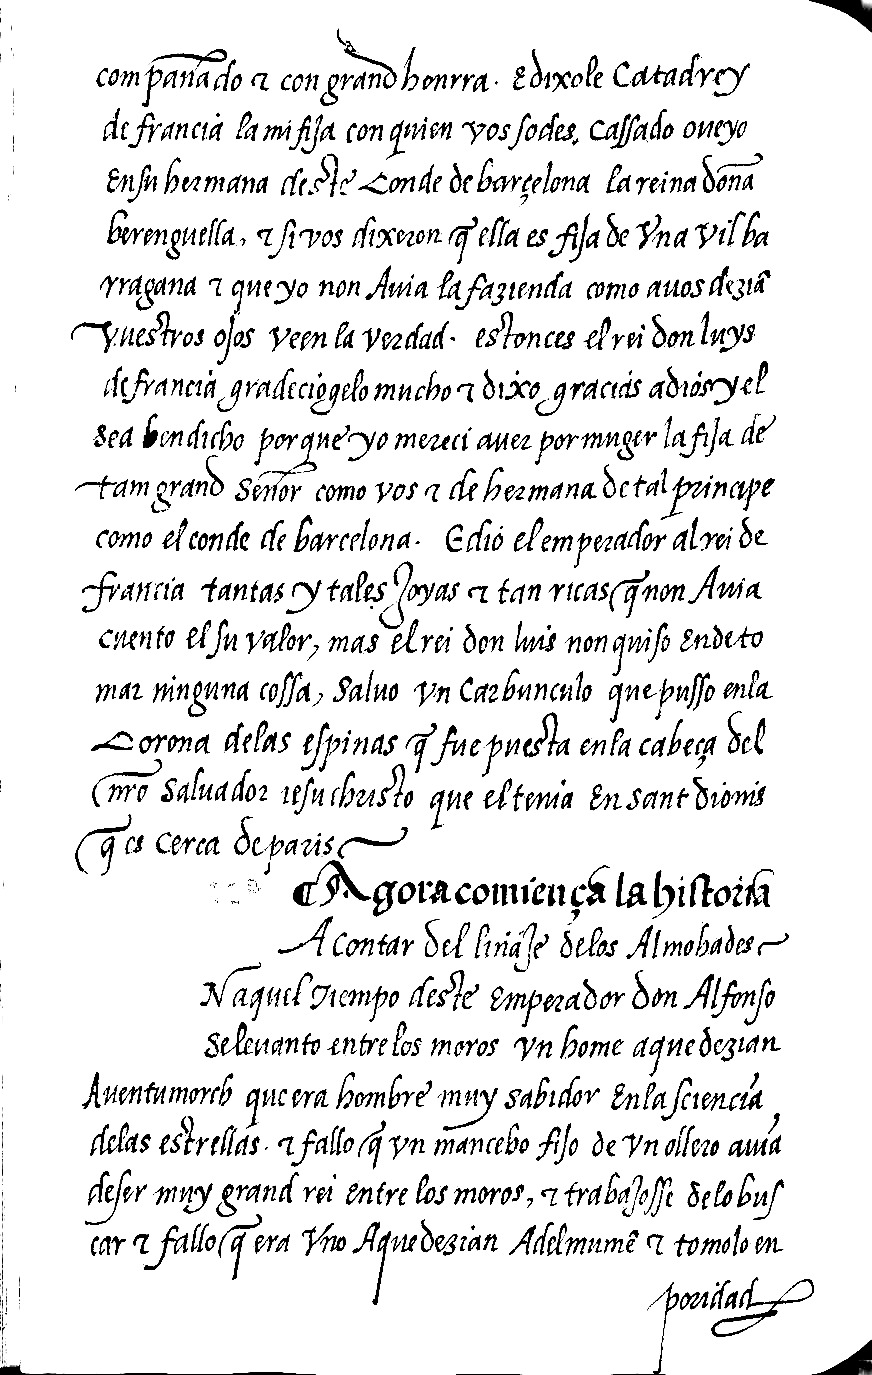 compañado τ con grand honrra. E dixole Catad rey
de francia la mi fija con quien vos sodes. cassado ove yo
en su hermana deste Conde de barçelona la reina doña
berenguella, τ si vos dixeron q̃ ella es fija de vna vil ba
rragana τ que yo non Auia la fazienda como a uos dezia
vuestros ojos veen la verdad. estonces el rei don luys
de francia gradeciogelo mucho τ dixo gracias a dios y el
sea bendicho porque yo mereci auer por muger la fija de
tam grand Señor como vos τ de hermana de tal principe
como el conde de barcelona. E dió el emperador al rei de
francia tantas y tales Joyas τ tan ricas q̃ non Auia
cuento el su valor, mas el rei don luis non quiso ende to
mar ninguna cossa, Saluo vn Carbunculo que pusso en la
Corona de las espinas q̃ fue puesta en la cabeça del
nr̃o Saluador iesu christo que el tenia en sant dionis
q̃ es cerca de paris
¶ Agora comiença la historia
A contar del liñaJe de los Almohades
N aquel Tiempo deste Emperador don Alfonso
se leuanto entre los moros vn home a que dezian
Auentumoreb que era hombre muy sabidor en la sciencia
de las estrellas. τ fallo q̃ vn mancebo fijo de vn ollero auia
de ser muy grand rei entre los moros, τ trabaJosse de lo bus
car τ fallo q̃ era vno A que dezian Adelmumẽ τ tomolo en
poridad